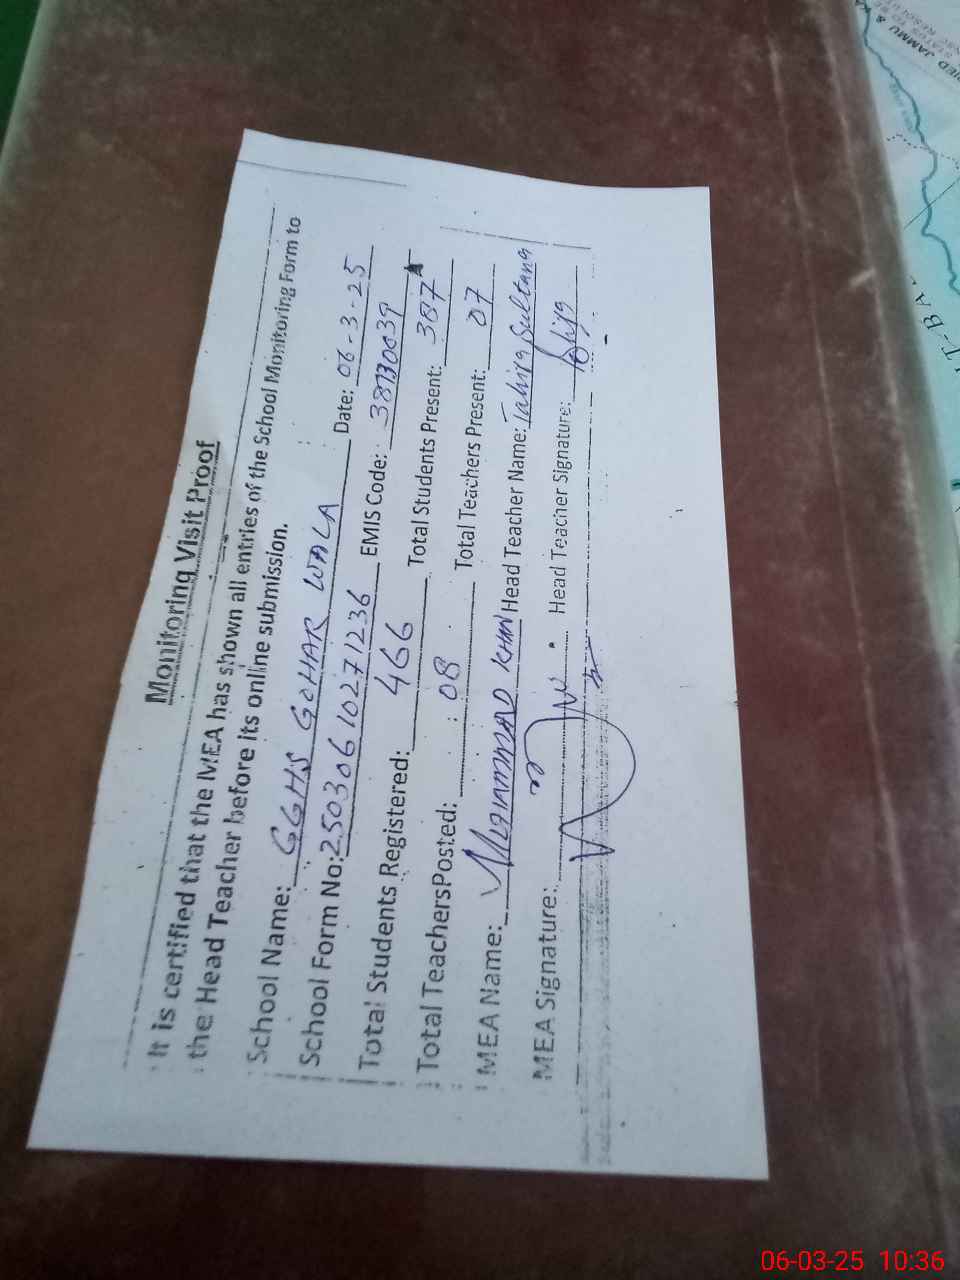 Monitoring Visit Proof
It is certified that the MEA has shown all entries of the School Monitoring Form to
the Head Teacher before its online submission.
School Name: GGHS GOHAR WALA Date: 06-3-25
School Form No: 25030610271236 EMIS Code: 38130039
Total Students Registered: 466 Total Students Present: 387
Total TeachersPosted: 08 Total Teachers Present: 07
MEA Name: MUHAMMAD KHAN Head Teacher Name: Tahira Sultana
MEA Signature: Head Teacher Signature:
JAMMU &
06-03-25 10:36